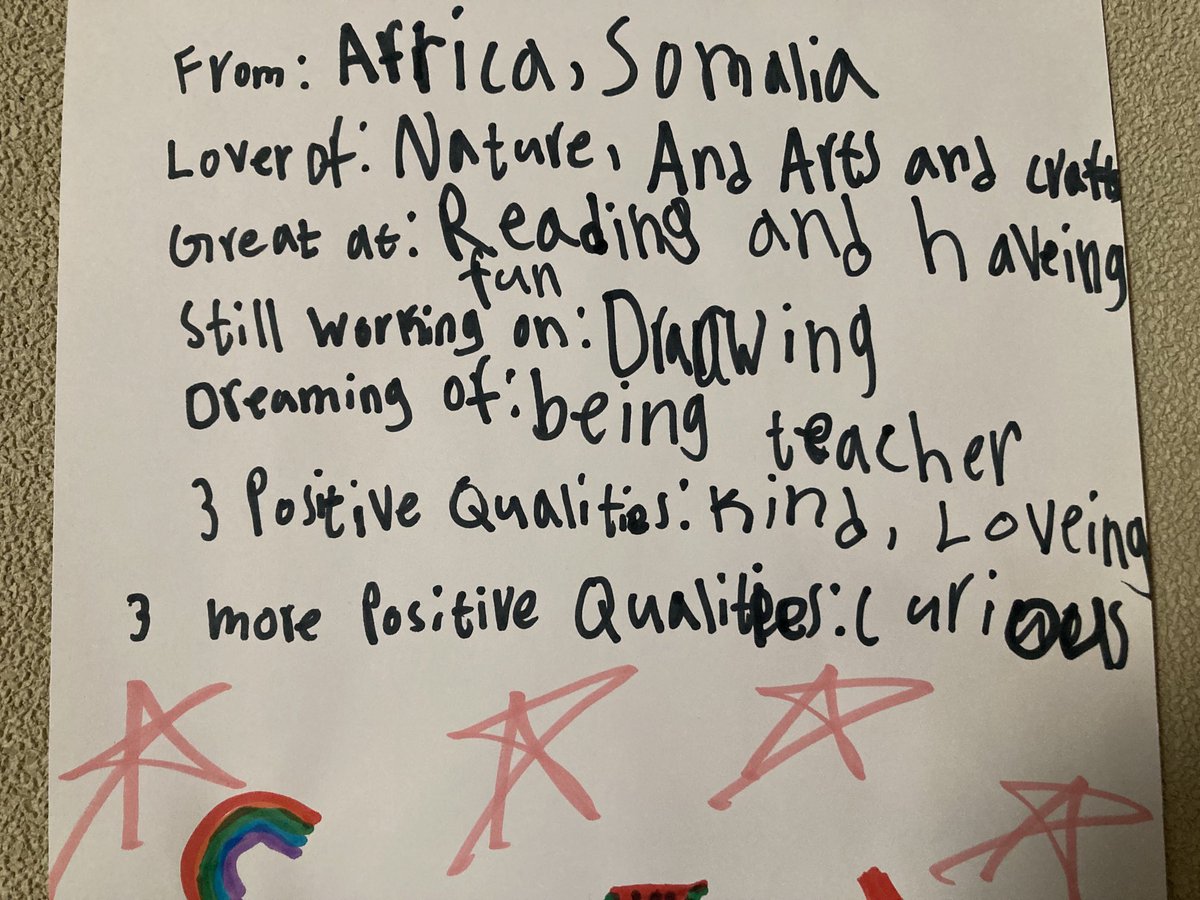 From: Africa, Somalia
Lover of: Nature, And Arts and crafts
Great at: Reading and haveing
fun
Still working on: Drawing
Dreaming of: being teacher
3 Positive Qualities: Kind, Loveing
3 more Positive Qualities: Curious